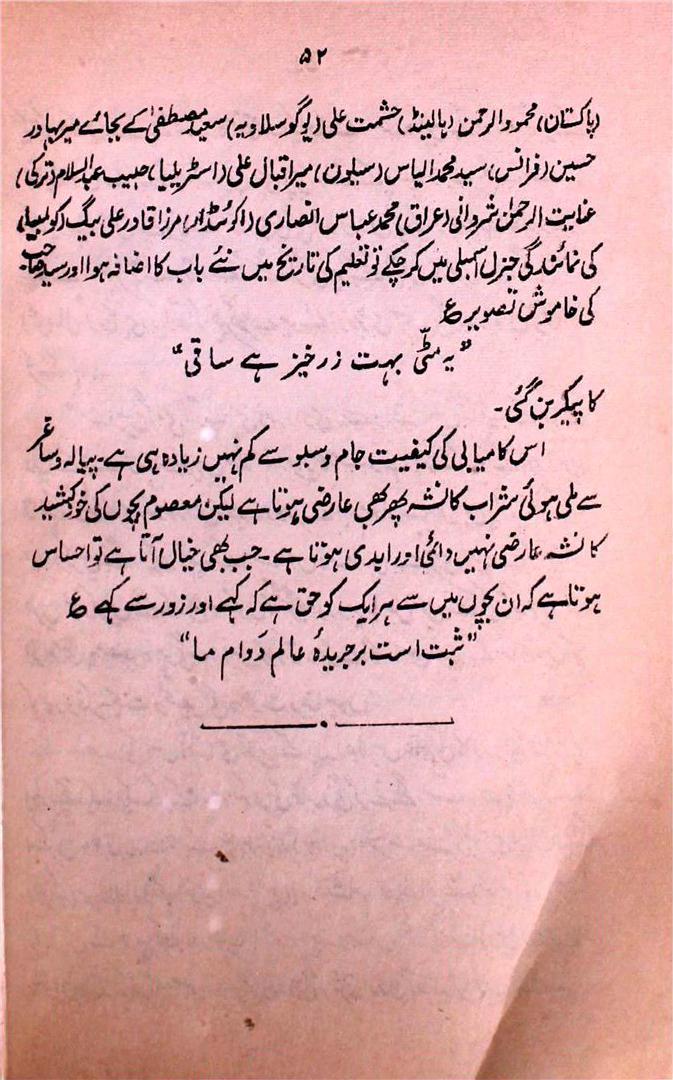 ۵۲
(پاکستان) محمود الرحمن (ہالینڈ) حشمت علی (یوگوسلاویہ) سعید مصطفیٰ کے بجائے میر بہادر
حسین (فرانس) سید محمد الیاس (سیلون) میر اقبال علی (اسٹریلیا) حبیب عبد السلام (ترکی)
عنایت الرحمن شروانی (عراق) محمد عباس انصاری (اکوئڈار) مرزا قادر علی بیگ (کولمبیا)
کی نمائندگی جنرل اسمبلی میں کر چکے تو تعلیم کی تاریخ میں نئے باب کا اضافہ ہوا اور سید صاحب
کی خاموش تصویر ع
"یہ مٹی بہت زرخیز ہے ساقی"
کا پیکر بن گئی۔
اس کامیابی کی کیفیت جام و سبو سے کم نہیں زیادہ ہی ہے۔ پیالہ و ساغر
سے ملی ہوئی شراب کا نشہ پھر بھی عارضی ہوتا ہے لیکن معصوم بچوں کی خود کشید
کا نشہ عارضی نہیں دائمی اور ابدی ہوتا ہے۔ جب بھی خیال آتا ہے تو احساس
ہوتا ہے کہ ان بچوں میں سے ہر ایک کو حق ہے کہ کہے اور زور سے کہے ع
"ثبت است بر جریدۂ عالم دَوام ما"